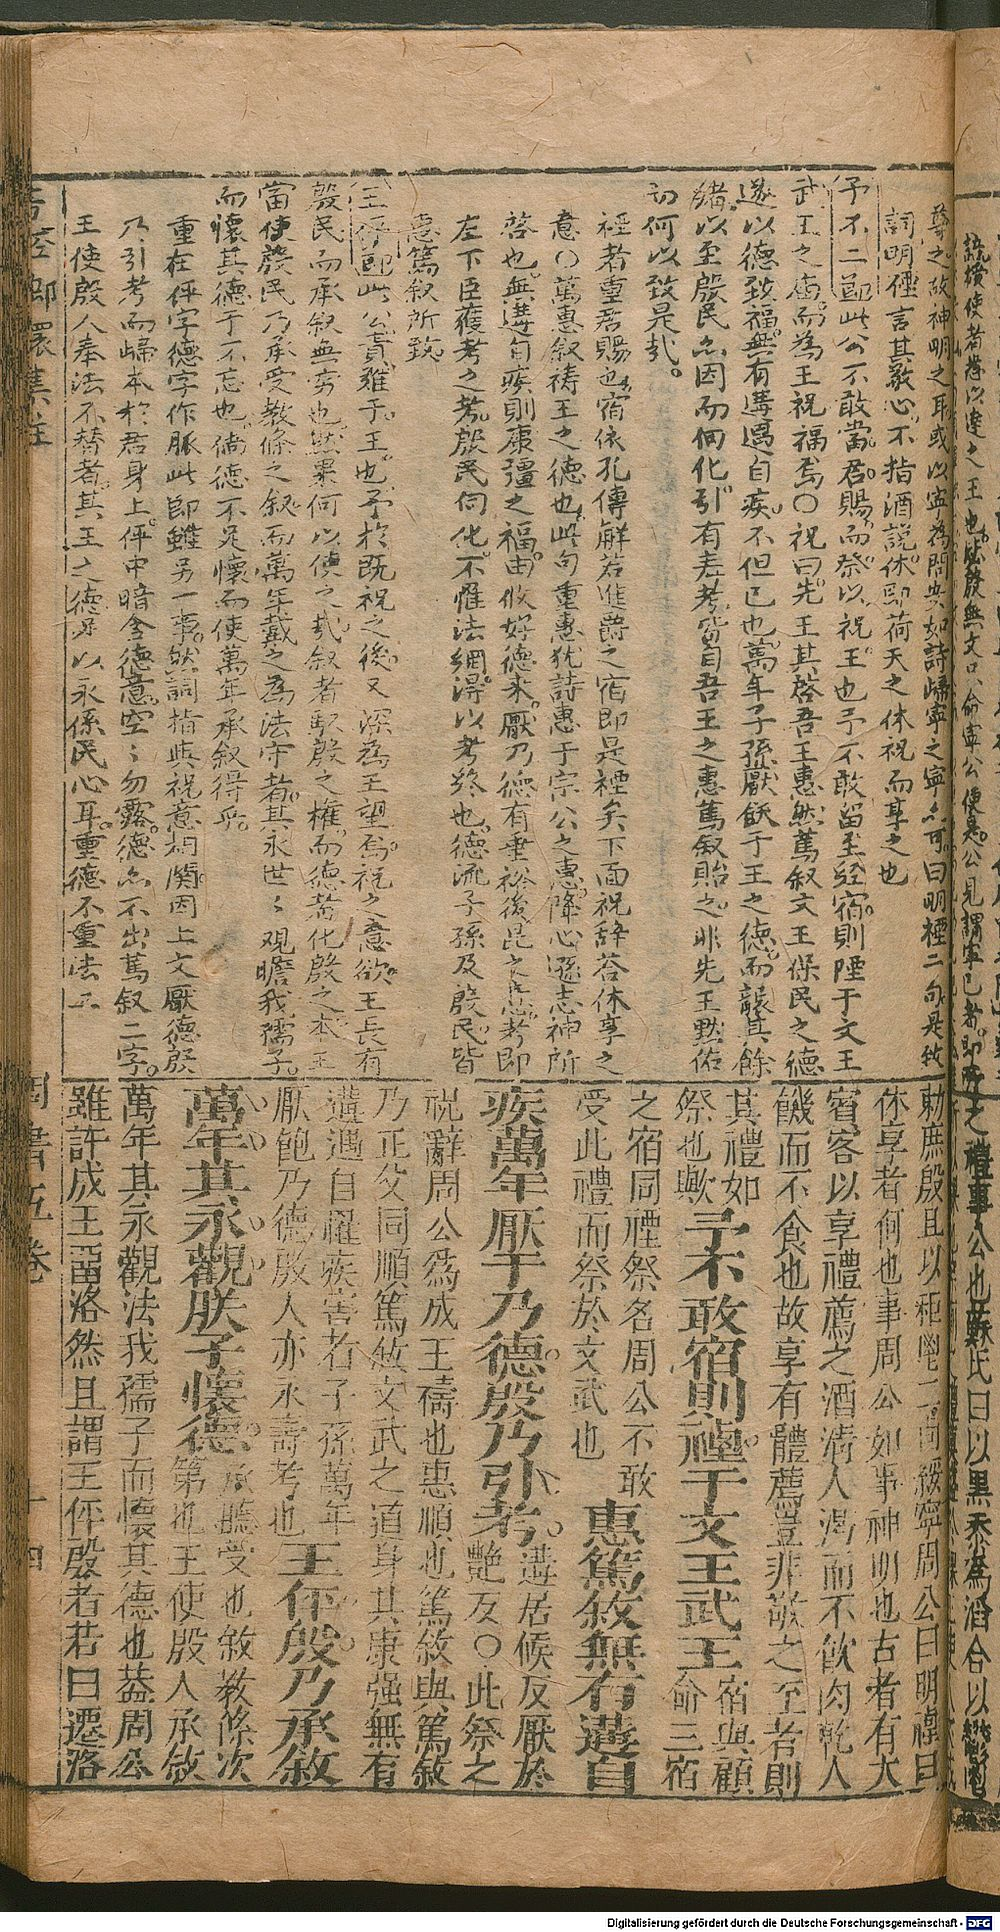 尊之故神明之耳或以寧為問安如詩歸寧之寧亦可曰明禋二句是敘
詞明禋言其敬心不指酒説休即荷天之休祝而享之也
予不二節此公不敢當君賜而祭以祝王也予不敢留至經宿則禋于文王
武王之廟而為王祝福焉○祝曰先王其啓吾王惠然篤叙文王保民之德
遂以德致福無有遘遇自疾不但已也萬年子孫厭飫于王之德而襲其餘
緒以至殷民亦因而向化引有壽考皆自吾王之惠篤叙貽之非先王默佑
切何以致是哉
禋者重君賜也宿依孔傳解若進爵之宿即是禋矣下面祝辞荅休享之
意○萬惠叙祷王之德也此句重惠犹詩惠于宗公之惠降心遜志神所
啓也無遘自疾則康彊之福由攸好德来厭乃德有垂裕後昆之意考即
左下臣獲考之考殷民向化不惟法網得以考終也德流子孫及殷民皆
惠篤叙所致
王伻節此公責难于王也予於既祝之後又深為王望焉祝之意欲王長有
殷民而承叙無穷也然果何以使之哉叙者馭殷之權而德者化殷之本王
當使殷民乃承受教條之叙而萬年戴之為法守者其永世〻观瞻我孺子
而懷其德于不忘也倘德不足懷而使萬年承叙得乎
重在伻字德字作脈此即雖另一事然詞指與祝意相關因上文厭德殷
乃引考而歸本於君身上伻中暗含德意空〻勿露德亦不出篤叙二字
王使殷人奉法不替者其王之德足以永係民心耳重德不重法
勅庶殷且以秬鬯二卣綏寧周公曰明禋曰
休享者何也事周公如事神明也古者有大
賓客以享禮薦之酒清人渴而不飲肉乾人
饑而不食也故享有體薦豈非敬之至者則
其禮如
祭也歟予不敢宿則禋于文王武王宿與顧
命三宿
之宿同禋祭名周公不敢
受此禮而祭於文武也惠篤敘無有遘自
疾萬年厭于乃德殷乃引考遘居候反厭於
艷反○此祭之
祝辭周公為成王禱也惠順也篤敘與篤敘
乃正父同順篤敘文武之道身其康强無有
遘遇自罹疾害者子孫萬年
厭飽乃德殷人亦永壽考也王伻殷乃承敘
萬年其永觀朕子懷德承聽受也敘教條次
第也王使殷人承敘
萬年其永觀法我孺子而懷其德也葢周公
雖許成王畱洛然且謂王伻殷者若曰遷洛
周書五卷
十四